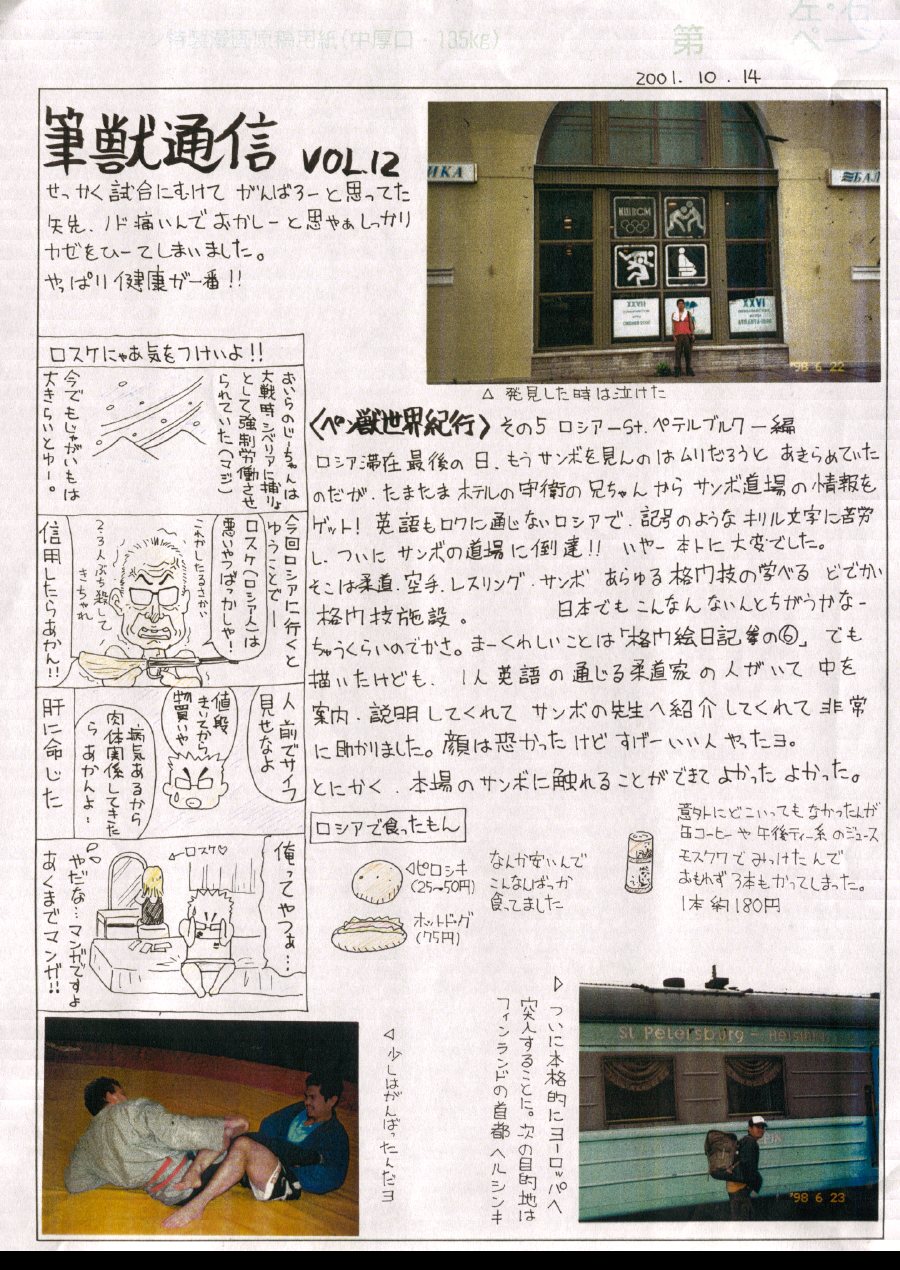 特製漫画原稿用紙(中厚口・135kg)
第
左・右
ページ
2001. 10. 14
筆獣通信 VOL.12
せっかく試合にむけて がんばろーと思ってた
矢先、ノド痛いんでおかしーと思やぁしっかり
カゼをひーてしまいました。
やっぱり健康が一番!!
ИКА
БАЛ
'98 6 22
△ 発見した時は泣けた
ロスケにゃあ気をつけいよ!!
おいらのじーちゃんは
大戦時シベリアに捕りょ
として強制労働させ
られていた(マジ)
今でもじゃがいもは
大きらいとゆー。
今回ロシアに行くと
ゆうことで—
ロスケ(ロシア人)は
悪いやつばっかしや!
これかしたるさかい
2、3人ぶち殺して
きちゃれ
信用したらあかん!!
人前でサイフ
見せなよ
値段
きいてから
物買いや
病気あるから
肉体関係してきた
らあかんよ…
肝に命じた
俺ってやつぁ…
←ロスケ♡
やだな…マンガですよ
あくまでマンガ!!
〈ペン獣世界紀行〉その5 ロシアーSt.ペテルブルクー編
ロシア滞在最後の日、もうサンボを見んのはムリだろうと あきらめていた
のだが、たまたまホテルの守衛の兄ちゃんからサンボ道場の情報を
ゲット! 英語もロクに通じないロシアで、記号のようなキリル文字に苦労
し、ついにサンボの道場に倒達!! いやー本トに大変でした。
そこは柔道、空手、レスリング、サンボ あらゆる格ウ技の学べる どでかい
格ウ技施設。 日本でもこんなんないんとちがうかなー
ちゅうくらいのでかさ。まーくわしいことは「格ウ絵日記 拳の⑥」でも
描いたけども、1人英語の通じる柔道家の人がいて 中を
案内・説明してくれて サンボの先生へ紹介してくれて非常
に助かりました。顔は恐かったけどすげーいい人やったヨ。
とにかく、本場のサンボに触れることができて よかったよかった。
ロシアで食ったもん
◁ピロシキ
(25〜50円)
ホットドッグ
(75円)
なんか安いんで
こんなんばっか
食ってました
意外にどこいってもなかったんが
缶コーヒーや午後ティー系のジュース
モスクワでみっけたんで
おもわず3本もかってしまった。
1本約180円
△少しはがんばったんだヨ
▷ついに本格的にヨーロッパへ
突入することに。次の目的地は
フィンランドの首都ヘルシンキ
St Petersburg - Helsinki
'98 6 23